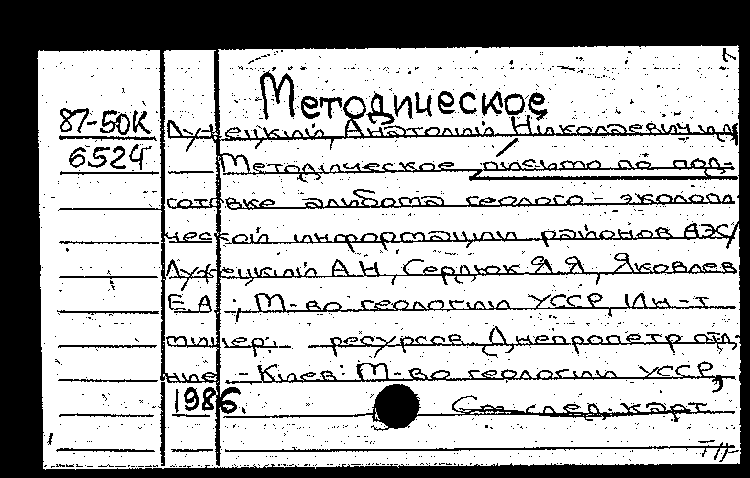 Методическое
87-50К Лужецкий, Анатолий Николаевич и др
6524 Методическое письмо по под-
готовке альбома геолого-экологи
ческой информации районов АЭС/
Лужецкий А.Н, Сердюк Я.Я, Яковлев
Е.А.; М-во геологии УССР, Ин-т
минер. ресурсов Днепропетр отд-
ние. - Киев: М-во геологии УССР,
1986.
См след. карт